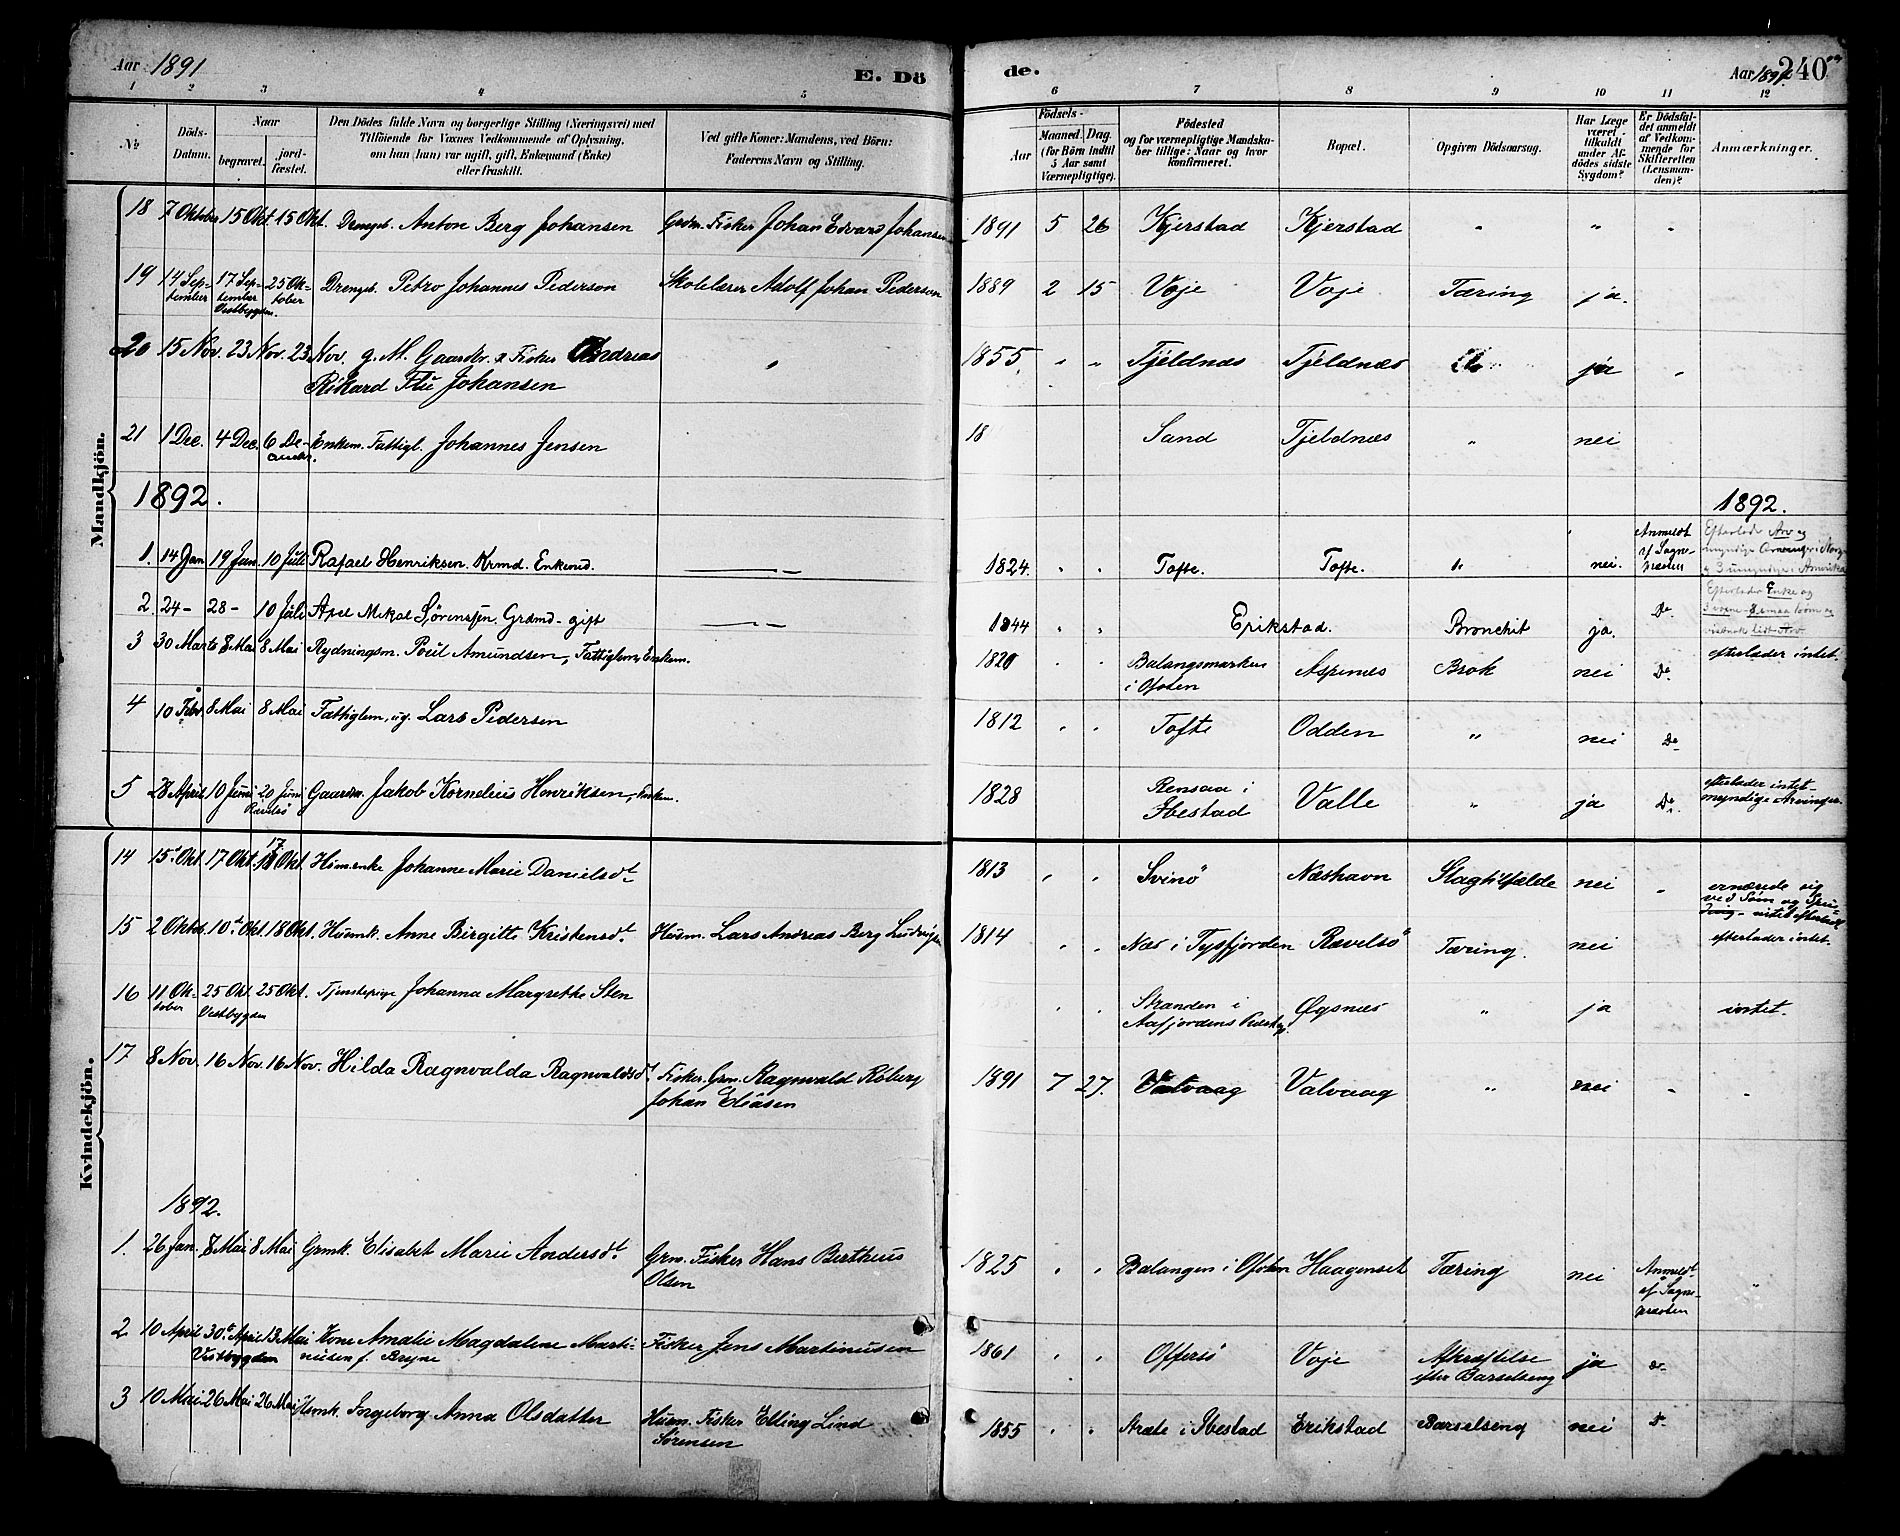 Aar 1891
E. Dö
de.
Aar 1891
240
1 2 3 4 5 6 7 8 9 10 11 12
№
Döds-Datum.
Naar
begravet.
jord-fæstet.
Den Dödes fulde Navn og borgerlige Stilling (Næringsvei) med
Tilföiende for Voxnes Vedkommende af Oplysning,
om han (hun) var ugift, gift, Enkemand (Enke)
eller fraskilt.
Ved gifte Koner: Mandens, ved Börn:
Faderens Navn og Stilling.
Födsels-
Aar
Maaned. Dag.
(for Börn indtil
5 Aar samt
Værnepligtige).
Födested
og for værnepligtige Mandska-
ber tillige: Naar og hvor
konfirmeret.
Bopæl.
Opgiven Dödsaarsag.
Har Læge
været
tilkaldt
under Af-
dödes sidste
Sygdom?
Er Dödsfal-
det anmeldt
af Vedkom-
mende for
Skifteretten
(Lensman-
den)?
Anmærkninger.
Mandkjön.
18 7 Oktober 15 Okt. 15 Okt. Drengeb. Anton Berg Johansen Grdm. Fisker Johan Edvard Johansen 1891 5 26 Kjerstad Kjerstad " " "
19 14 September 17 September Vestbygden. 25 Oktober Drengeb. Petro Johannes Pederson Skolelærer Adolf Johan Pederson 1889 2 15 Voje Voje Tæring ja.
20 15 Nov. 23 Nov. 23 Nov. g. M. Gaardbr. & Fisker Andreas
Rikard Flu Johansen " 1855. " " Tjeldnæs Tjeldnæs ja "
21 1 Dec. 4 Dec. 6 De- Enkem. Fattigl. Johannes Jensen 18 Sand Tjeldnæs " nei
1892.
1892.
1. 14 Jan 19 Jan. 10 Juli Rafael Henriksen. Krmd. Enkemd. 1824. " " Tofte. Tofte. " nei. Anmeldt af Sogne-præsten
2. 24 - 28 - 10 Juli Axel Mikal Sørenssen. Grdmd - gift 1844 " " Erikstad. Bronchit ja. Do
3 30 Marts 8 Mai 8 Mai Rydningsm. Poul Amundsen, Fattiglem, Enkem. 1820 " " Balangsmarken i Ofoten Aspenes Brok nei Do efterlader intet.
4 10 Febr. 8 Mai 8 Mai Fattiglem, ug. Lars Pedersen 1812 " " Tofte Odden " nei Do
5 28 April 10 Juni 20 Juni Gaardm. Jakob Kornelius Henriksen, Enkem. 1828 Rensaa i Ibestad Valle " ja Do efterlader intet - myndige Arvinger.
Kvindekjön.
14 15. Okt. 17 Okt. 17 Okt. Husm.enke Johanne Marie Danielsdt 1813 " " Svinö Næshavn Slagtilfælde nei " ernærede sig
15 2 Oktob. 10de Okt. 18 Okt. Husmk. Anne Birgitte Kristensdt. Husm. Lars Andreas Berg Ludvigsen 1814 " " Næs i Tysfjorden Ravelsö Tæring. nei efterlader intet.
16 11 Oktober 25 Okt. Vestbygden 25 Okt. Tjenstepige Johanna Margrethe Sten " " Stranden i Aafjordens Øgsnæs " ja intet.
17 8 Nov. 16 Nov. 16 Nov. Hilda Ragnvalda Ragnvaldsdt Fisker. Grm. Ragnvald Roberg
Johan Eliasen 1891 7 27. Valvaag Valvaag " nei " "
1892.
1. 26 Jan. 8 Mai 8 Mai Grmk. Elisabet Marie Andersdt Grm. Fisker Hans Berthius
Olsen 1825 " " Balangen i Ofoten Haagenset Tæring nei Anmeldt af Sogne-præsten "
2 10 April 30te April Vestbygden 13 Mai Kone Amalie Magdalene Marti-
nusen f. Brejne Fisker Jens Martinusen 1861 " " Offersö Voje Afkræftelse
efter Barselseng ja
3 10 Mai 26 Mai 26 Mai Husmk. Ingeborg Anna Olsdatter Husm. Fisker Elling Lind
Sørensen 1855 " " Stræte i Ibestad Erikstad Barselseng nei Do